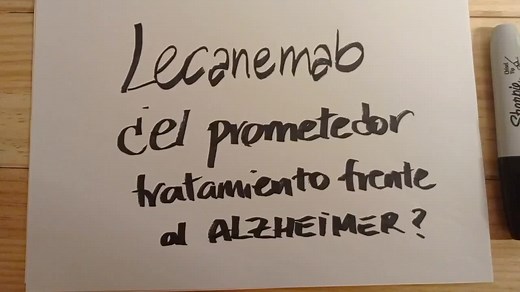 Lecanemab
¿el prometedor
tratamiento frente
al ALZHEIMER?
Sharpie